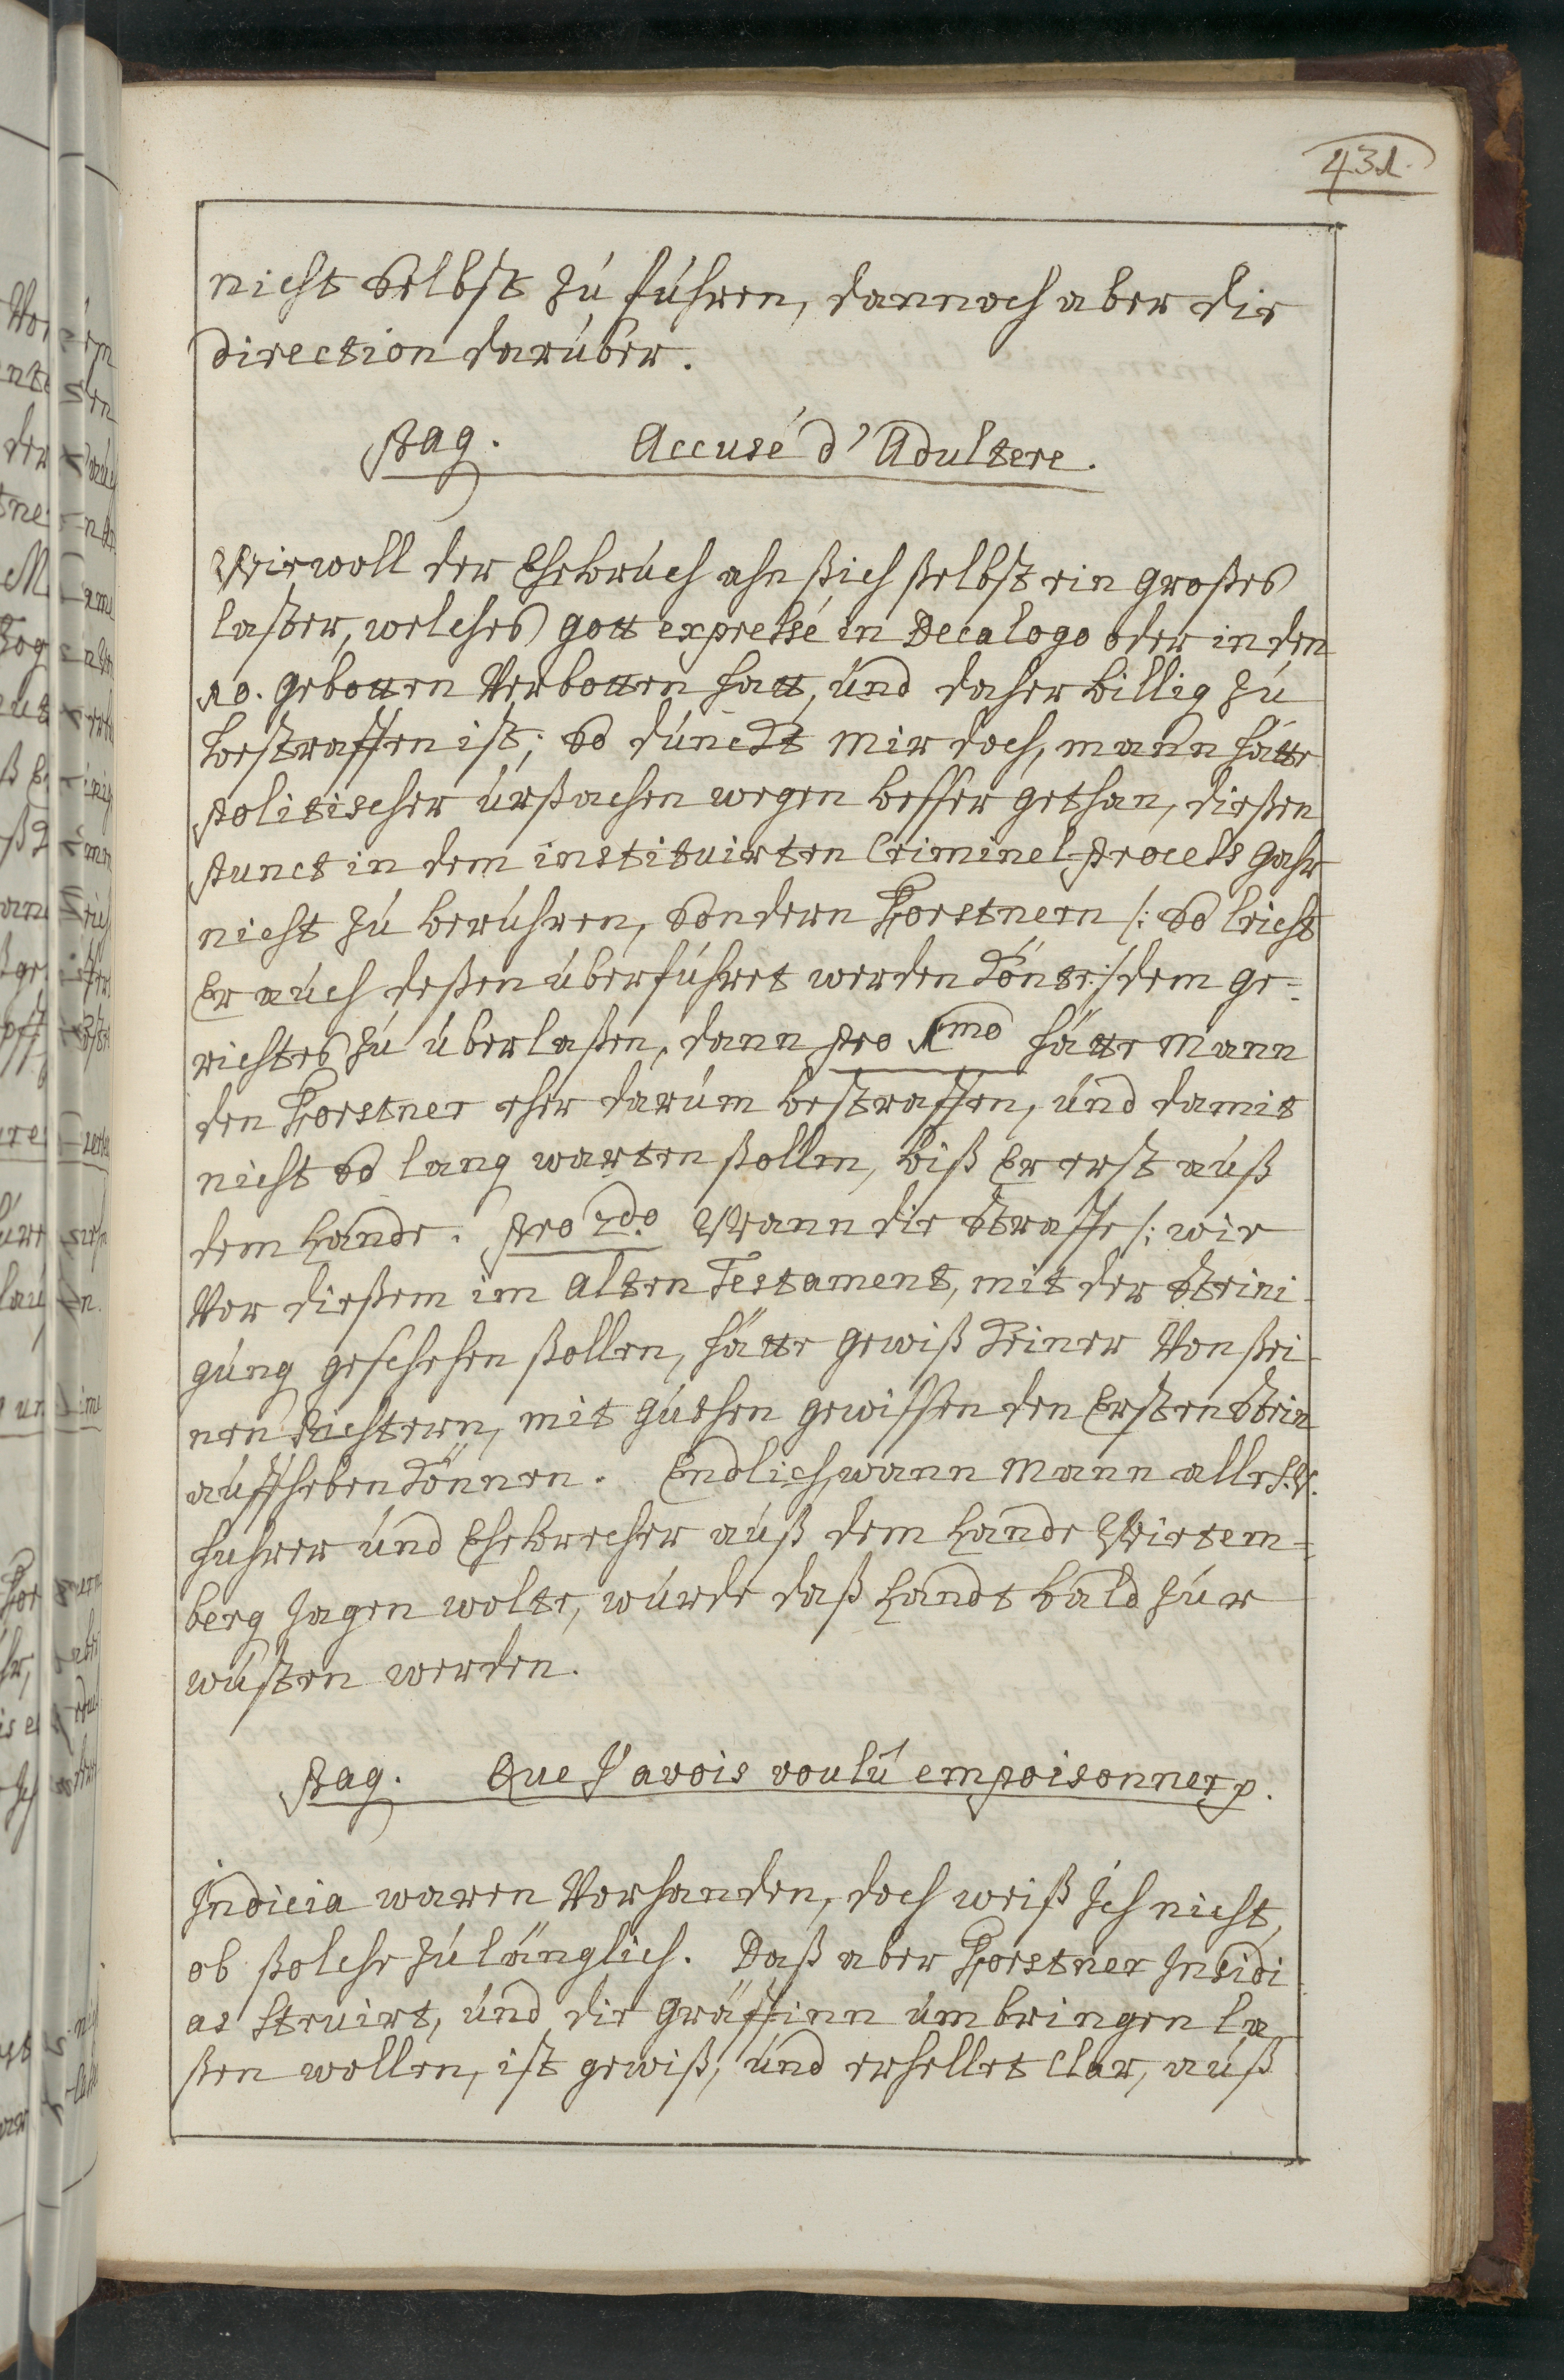 431.
nicht selbst zu führen, dannoch aber die
direction darüber.
Pag. Accusé d'Adultere.
Wiewoll der Ehebruch ahn sich selbst ein großes
laster, welches gott expressé in Decalogo oder in den
10. gebotten Verbotten hatt, und daher billig zu
bestraffen ist; so dünckt mir doch, mann hätte
politischer urßachen wegen besser gethan, dießen
punct in dem instituirten Criminel-Process gahr
nicht zu berühren, sondern Forstnern /: so leicht
Er auch deßen überführet werden könte :/ dem ge-
richtes zu überlaßen, dann pro 1mo hätte mann
den Forstner eher darum bestraffen, und damit
nicht so lang warten ßollen, biß Er erst auß
dem Lande. Pro 2do. Wann die straffe /: wie
Vor dießem im alten Testament, mit der steini-
gung geschehen ßollen, hätte gewiß keiner Von ßei-
nen Richtern, mit guthen gewissen den Ersten stein
auffheben können. Endlich, wann mann alle s. v.
huhrer und Ehebrecher auß dem Lande Wirtem-
berg jagen wolte, würde daß Landt bald zur
wüsten werden.
Pag. Que J'avois voulû empoisonner p.
Indicia waren Vorhanden, doch weiß Ich nicht,
ob ßolche zulänglich. Daß aber Forstner Insidi-
as struirt, und die gräffinn umbringen la-
ßen wollen, ist gewiß, und erhellet Clar, auß